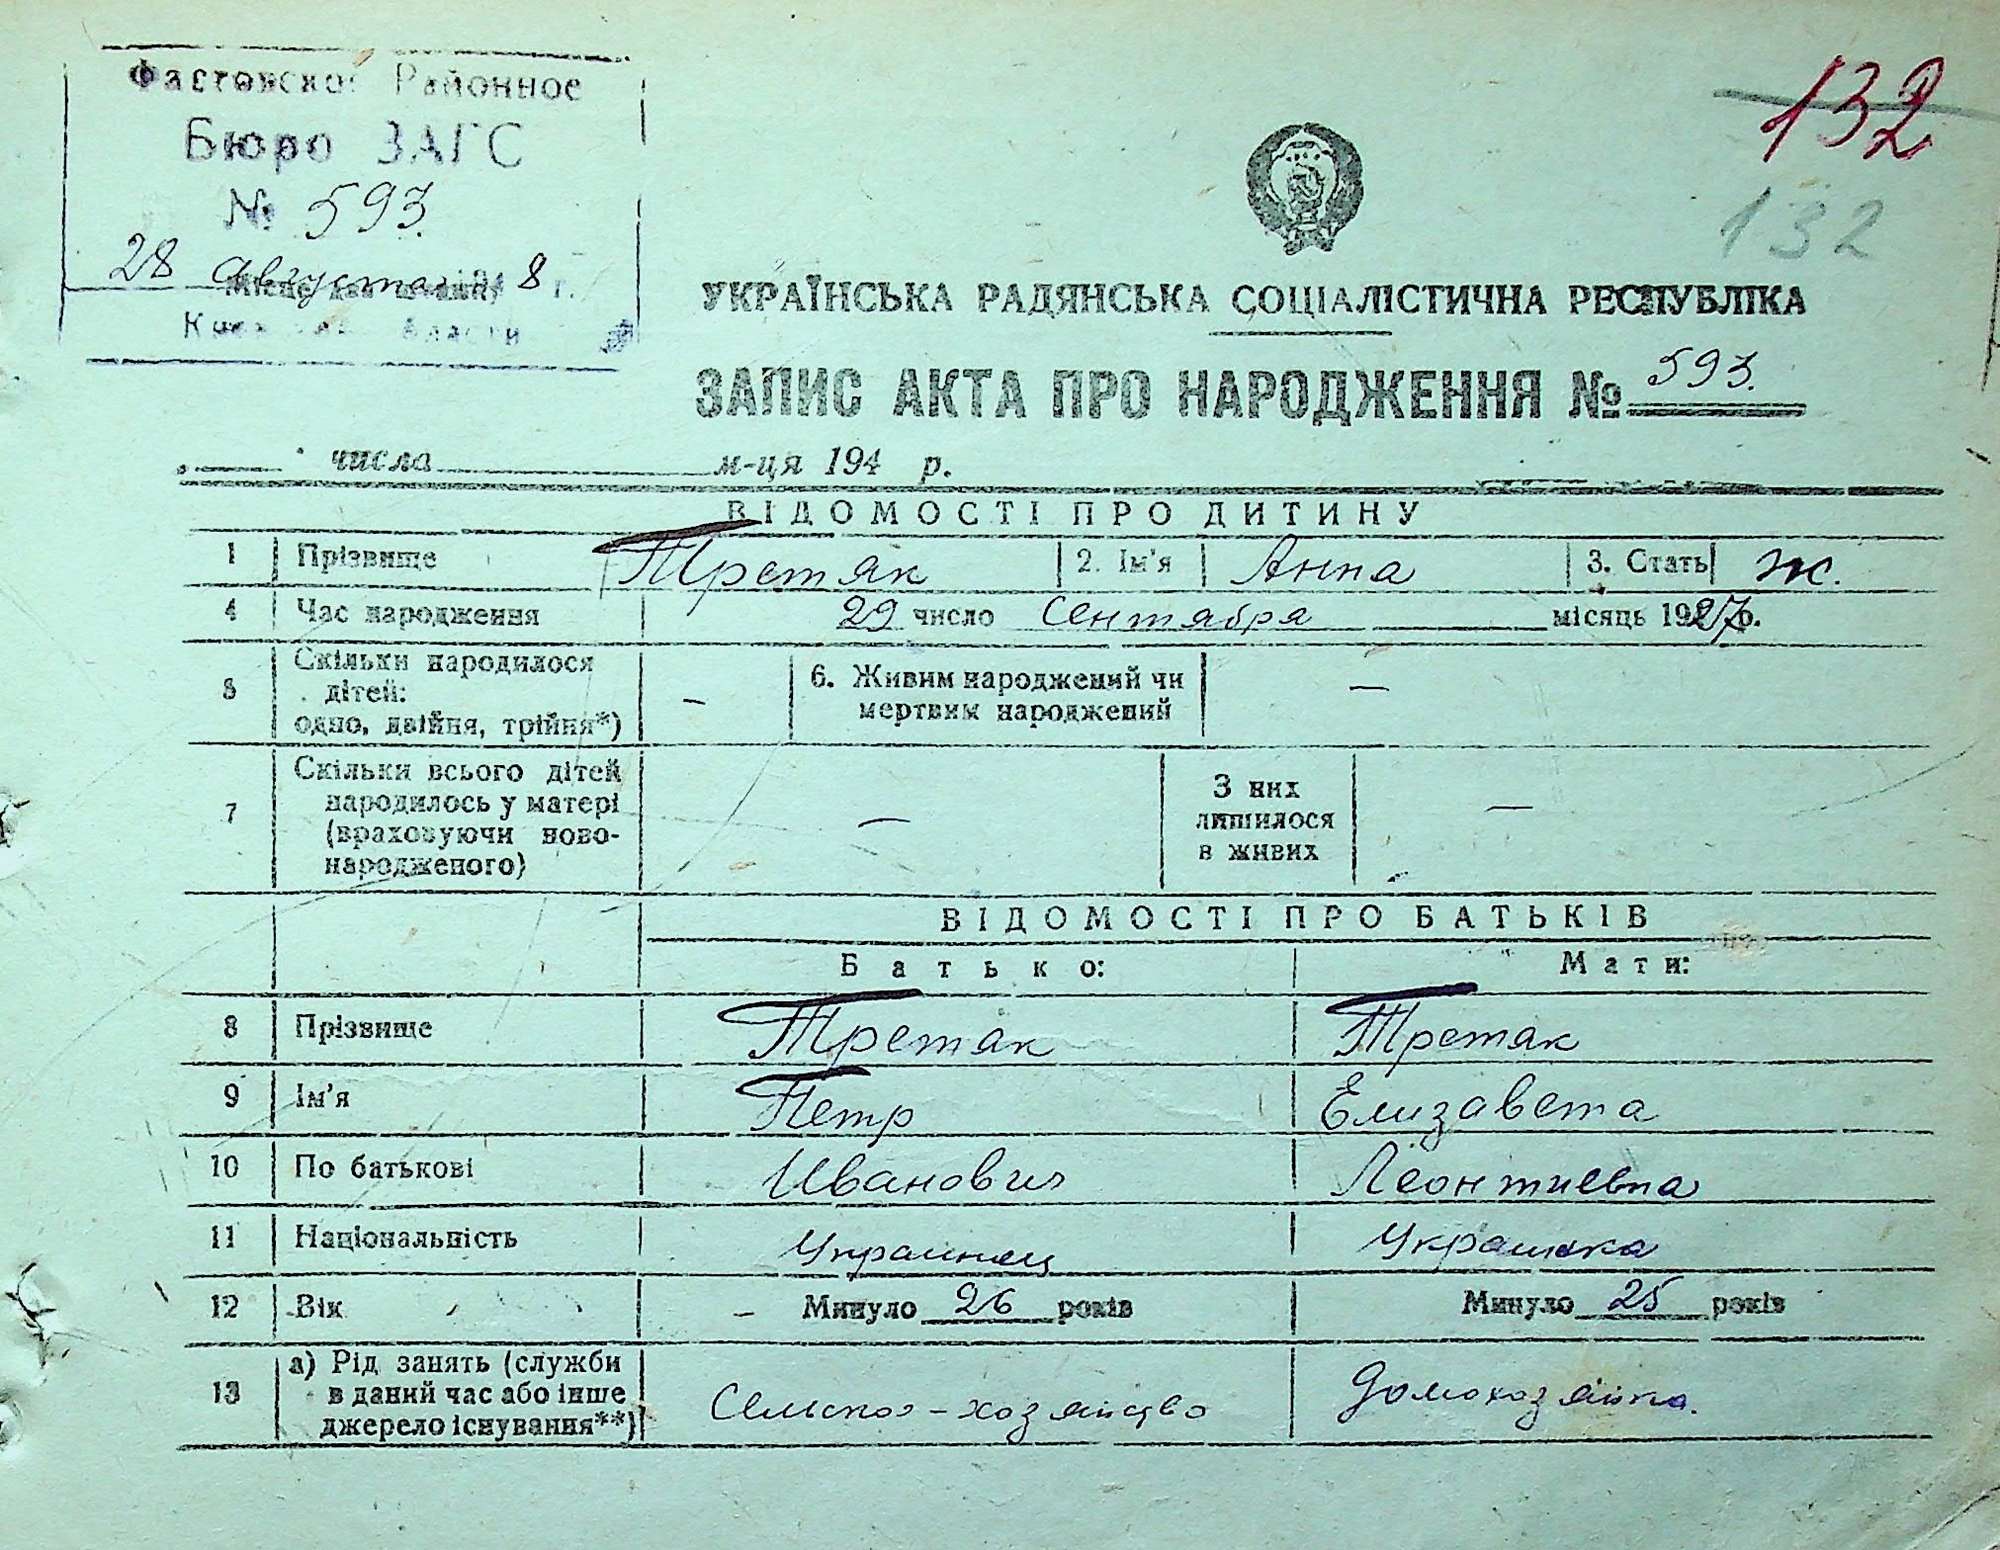 Фастовское Районное
Бюро ЗАГС
№ 593.
28 августа 8 г.
132
132
УКРАЇНСЬКА РАДЯНСЬКА СОЦІАЛІСТИЧНА РЕСПУБЛІКА
ЗАПИС АКТА ПРО НАРОДЖЕННЯ № 593.
числа м-ця 194 р.
ВІДОМОСТІ ПРО ДИТИНУ
1 Прізвище Третяк 2. Ім'я Анна 3. Стать ж.
4 Час народження 29 число Сентября місяць 1927 р.
5 Скільки народилося
дітей:
одно, двійня, трійня*) –
6. Живим народжений чи
мертвим народжений –
7 Скільки всього дітей
народилось у матері
(враховуючи ново-
народженого) –
З них
лишилося
в живих –
ВІДОМОСТІ ПРО БАТЬКІВ
Батько: Мати:
8 Прізвище Третяк Третяк
9 Ім'я Петр Елизавета
10 По батькові Иванович Леонтиевна
11 Національність Украинец Украинка
12 Вік – Минуло 26 років Минуло 25 років
13 а) Рід занять (служби
в даний час або інше
джерело існування**)
Сельско-хозяйство Домохозяйка.